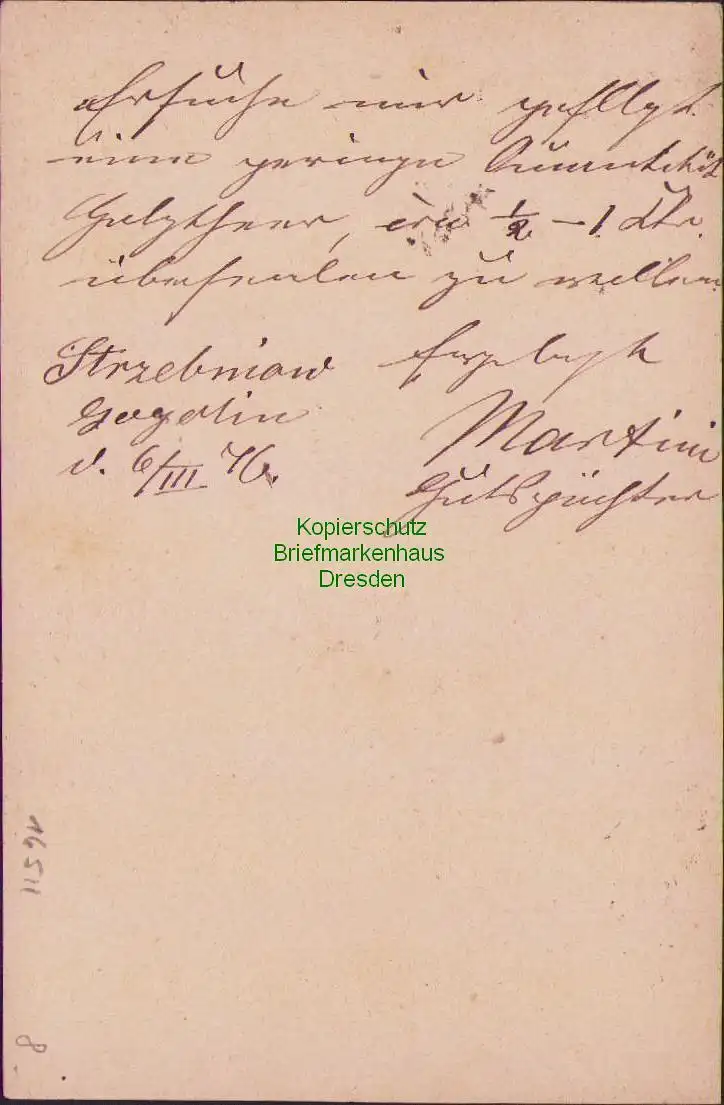 Ersuche mir gefllgst
eine geringe Quantität
Holztheer, ca ½ – 1 Ctr.
übersenden zu wollen.
Strzebniow
Gogolin
d. 6/III 76.
Ergebenst
Martini
Gutspächter
Kopierschutz
Briefmarkenhaus
Dresden
11594
8